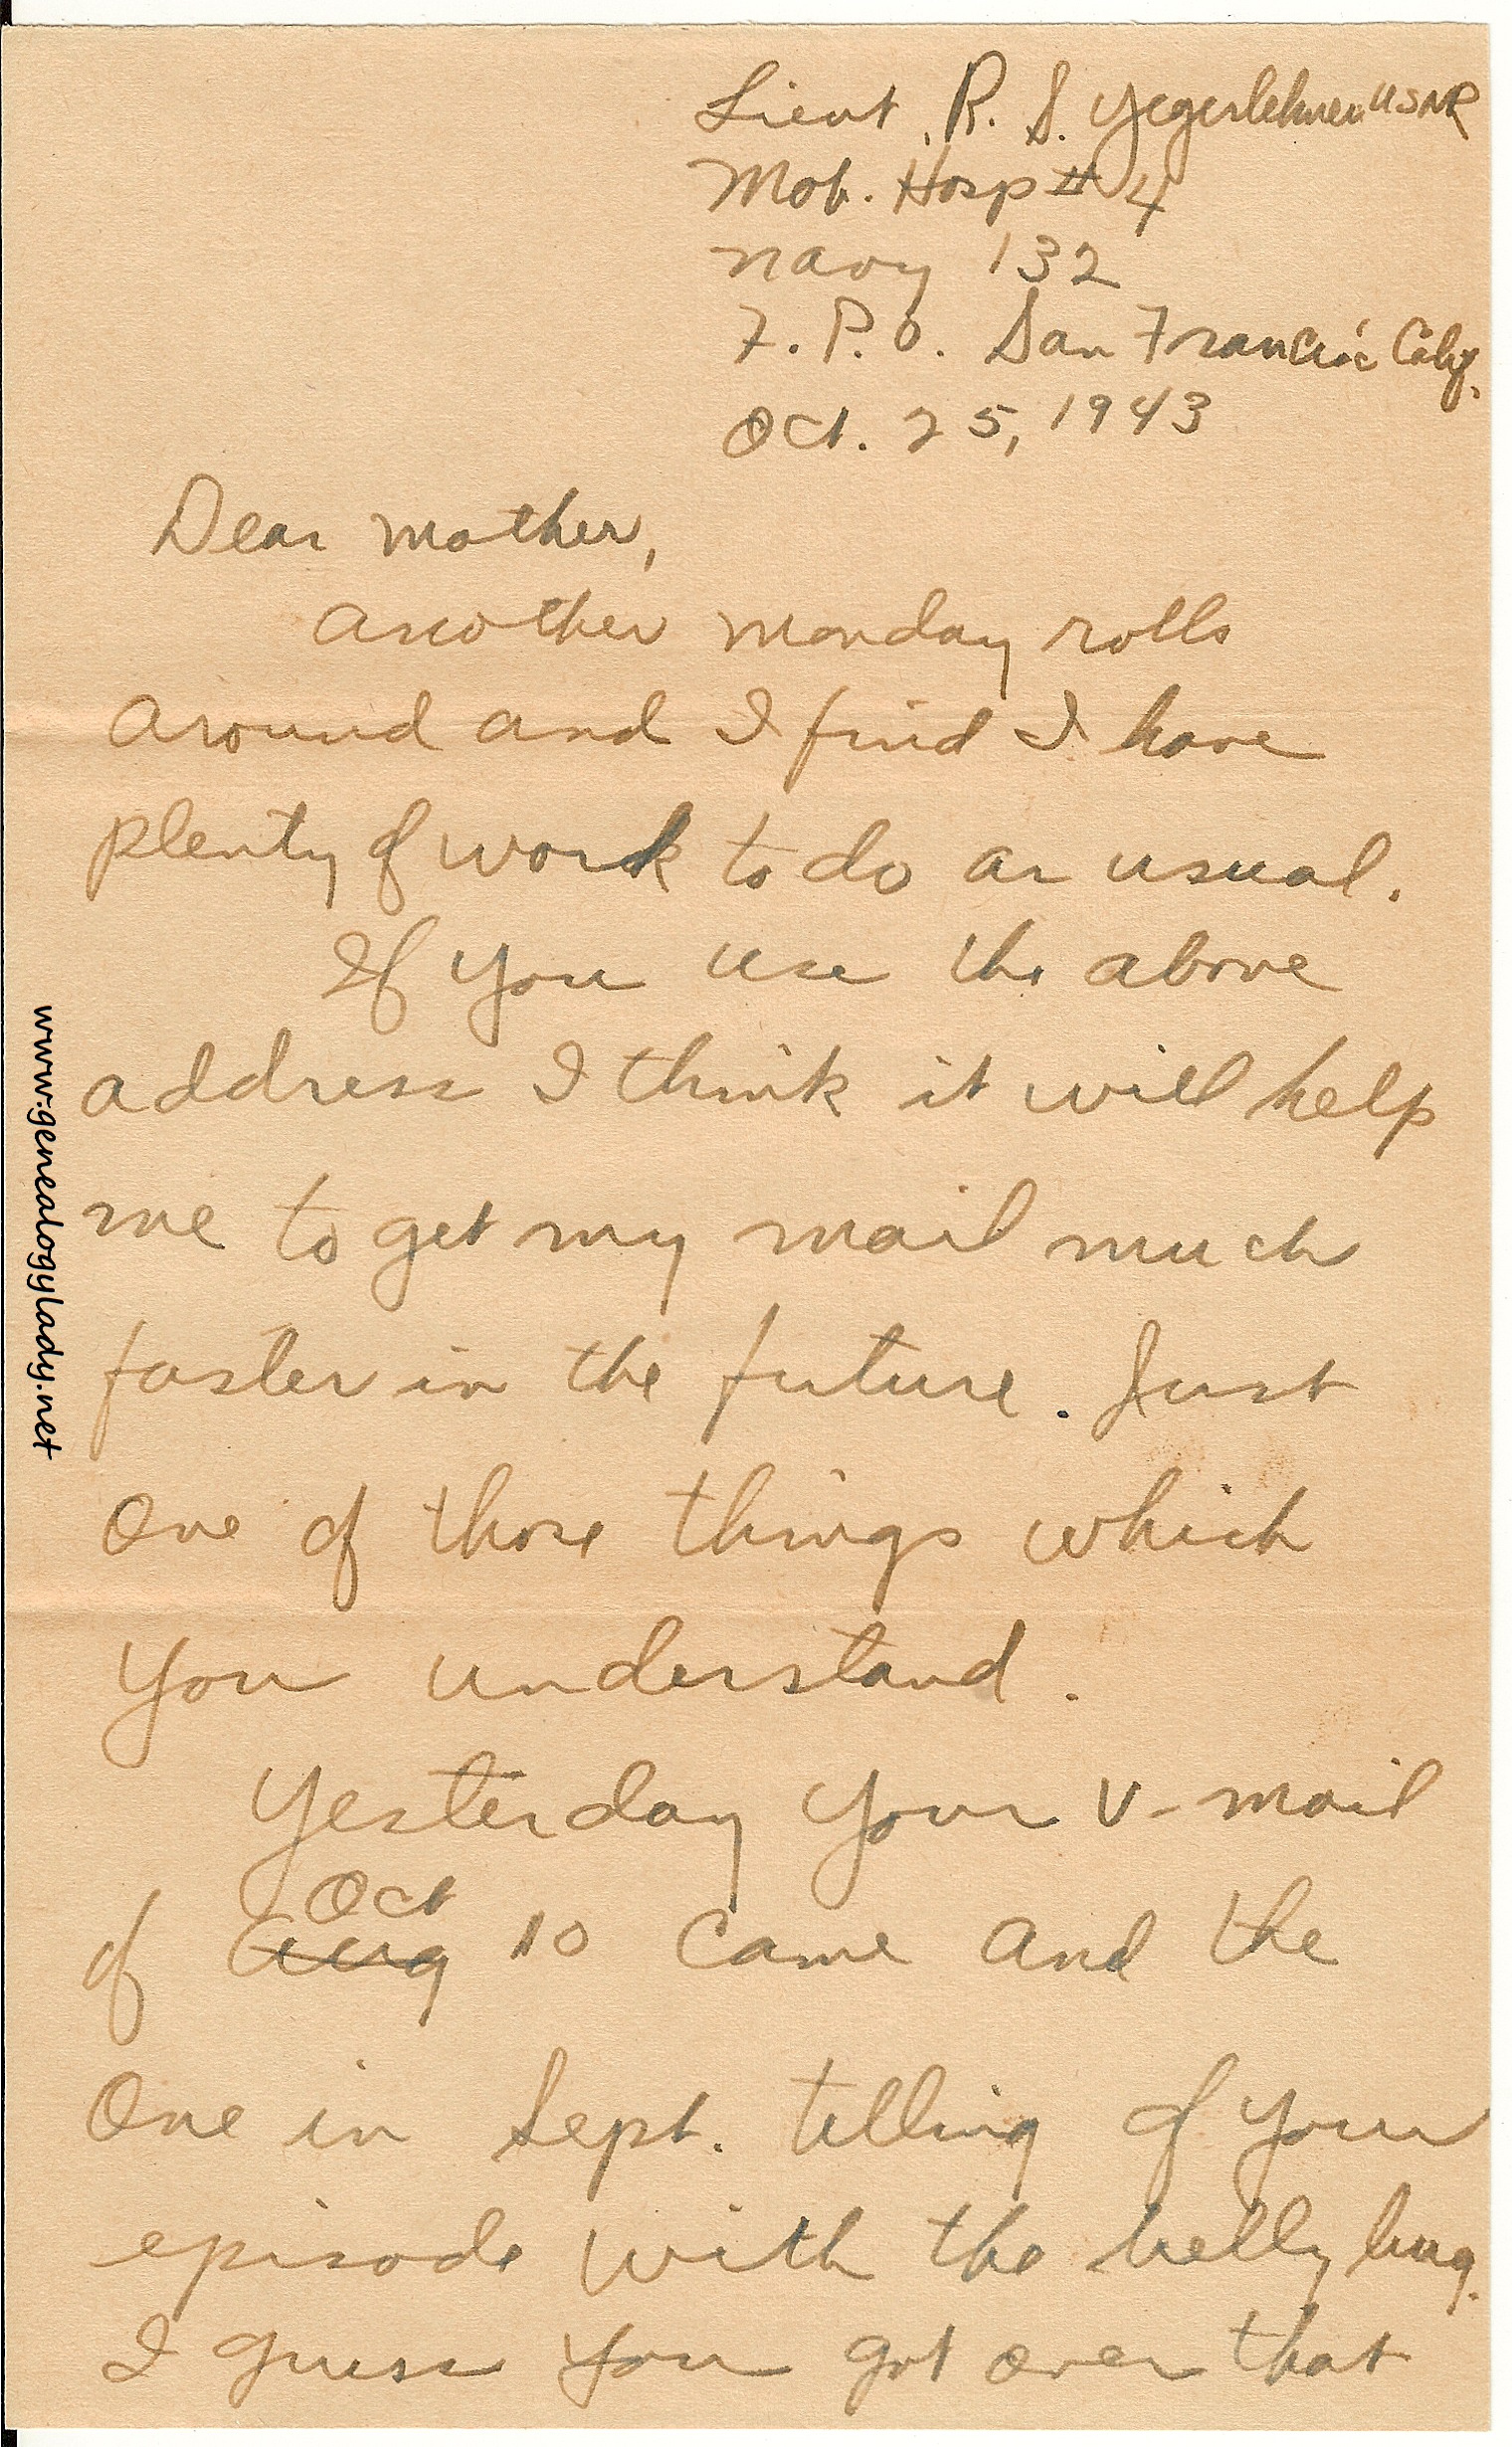 Lieut. R. S. Yegerlehner USNR
Mob. Hosp # 4
Navy 132
F. P. O. San Francisc Calif.
Oct. 25, 1943
Dear Mother,
Another Monday rolls
around and I find I have
plenty of work to do as usual.
If you use the above
address I think it will help
me to get my mail much
faster in the future. Just
one of those things which
you understand.
Yesterday your V-mail
Oct
of Aug 10 came and the
one in Sept. telling of your
episode with the belly bug.
I guess you got over that
www.genealogylady.net